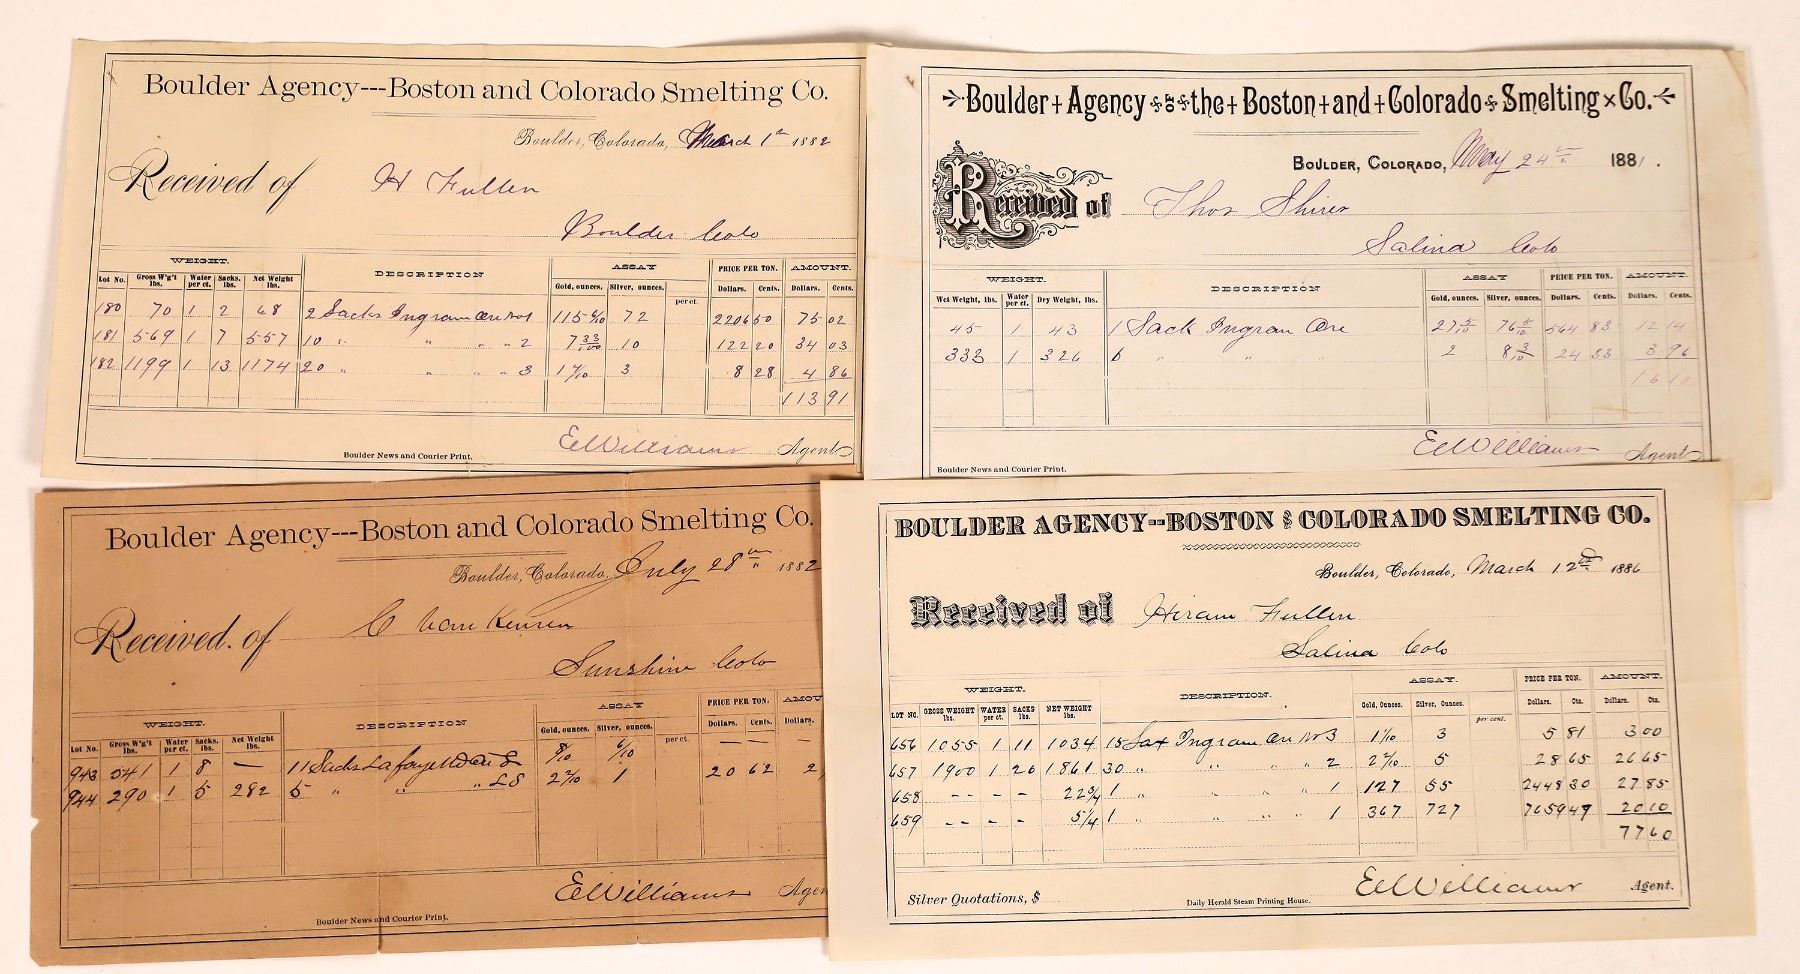 Boulder Agency---Boston and Colorado Smelting Co.
Boulder, Colorado, March 1st 1882
Received of H Fullen
Boulder Colo
WEIGHT. DESCRIPTION ASSAY PRICE PER TON. AMOUNT.
Lot No. Gross W'g't lbs. Water per ct. Sacks. lbs. Net Weight lbs. Gold, ounces. Silver, ounces. per ct. Dollars. Cents. Dollars. Cents.
180 70 1 2 68 2 Sacks Ingram Ore No 1 115 6/10 72 2206 50 75 02
181 569 1 7 557 10 " " " " 2 7 33/100 10 122 20 34 03
182 1199 1 13 1174 20 " " " " 3 1 4/10 3 8 28 4 86
113 91
E E Williams Agent
Boulder News and Courier Print.
Boulder Agency of the Boston and Colorado Smelting Co.
Boulder, Colorado, May 24th 1881.
Received of Thos Shires
Salina Colo
WEIGHT. DESCRIPTION ASSAY PRICE PER TON. AMOUNT.
Wet Weight, lbs. Water per ct. Dry Weight, lbs. Gold, ounces. Silver, ounces. Dollars. Cents. Dollars. Cents.
45 1 43 1 Sack Ingram Ore 27 5/10 76 5/10 564 83 12 14
333 1 326 6 " " " 2 8 3/10 24 33 3 96
16 10
E E Williams Agent
Boulder News and Courier Print.
Boulder Agency---Boston and Colorado Smelting Co.
Boulder, Colorado, July 28th 1882
Received. of C Van
Sunshine Colo
WEIGHT. DESCRIPTION ASSAY PRICE PER TON. AMOU
Lot No. Gross W'g't lbs. Water per ct. Sacks. lbs. Net Weight lbs. Gold, ounces. Silver, ounces. per ct. Dollars. Cents. Dollars.
943 541 1 8 — 11 Sacks Lafayette 8/10 6/10 — — —
944 290 1 5 282 5 " " " LS 2 2/10 1 20 62 2
E E Williams Agen
Boulder News and Courier Print.
BOULDER AGENCY--BOSTON AND COLORADO SMELTING CO.
Boulder, Colorado, March 12nd 1886
Received of Hiram Fullen
Salina Colo
WEIGHT. DESCRIPTION. ASSAY. PRICE PER TON. AMOUNT.
LOT NO. GROSS WEIGHT lbs. WATER per ct. SACKS lbs. NET WEIGHT lbs. Gold, Ounces. Silver, Ounces. per cent. Dollars. Cts. Dollars. Cts.
656 1055 1 11 1034 15 Sax Ingram Ore No 3 1 1/10 3 5 81 3 00
657 1900 1 26 1861 30 " " " " 2 2 4/10 5 28 65 26 65
658 - - - - 22 3/4 1 " " " " 1 127 55 2448 30 27 85
659 - - - - 5 1/4 1 " " " " 1 367 727 7659 49 20 10
77 60
Silver Quotations, $ E E Williams Agent.
Daily Herald Steam Printing House.